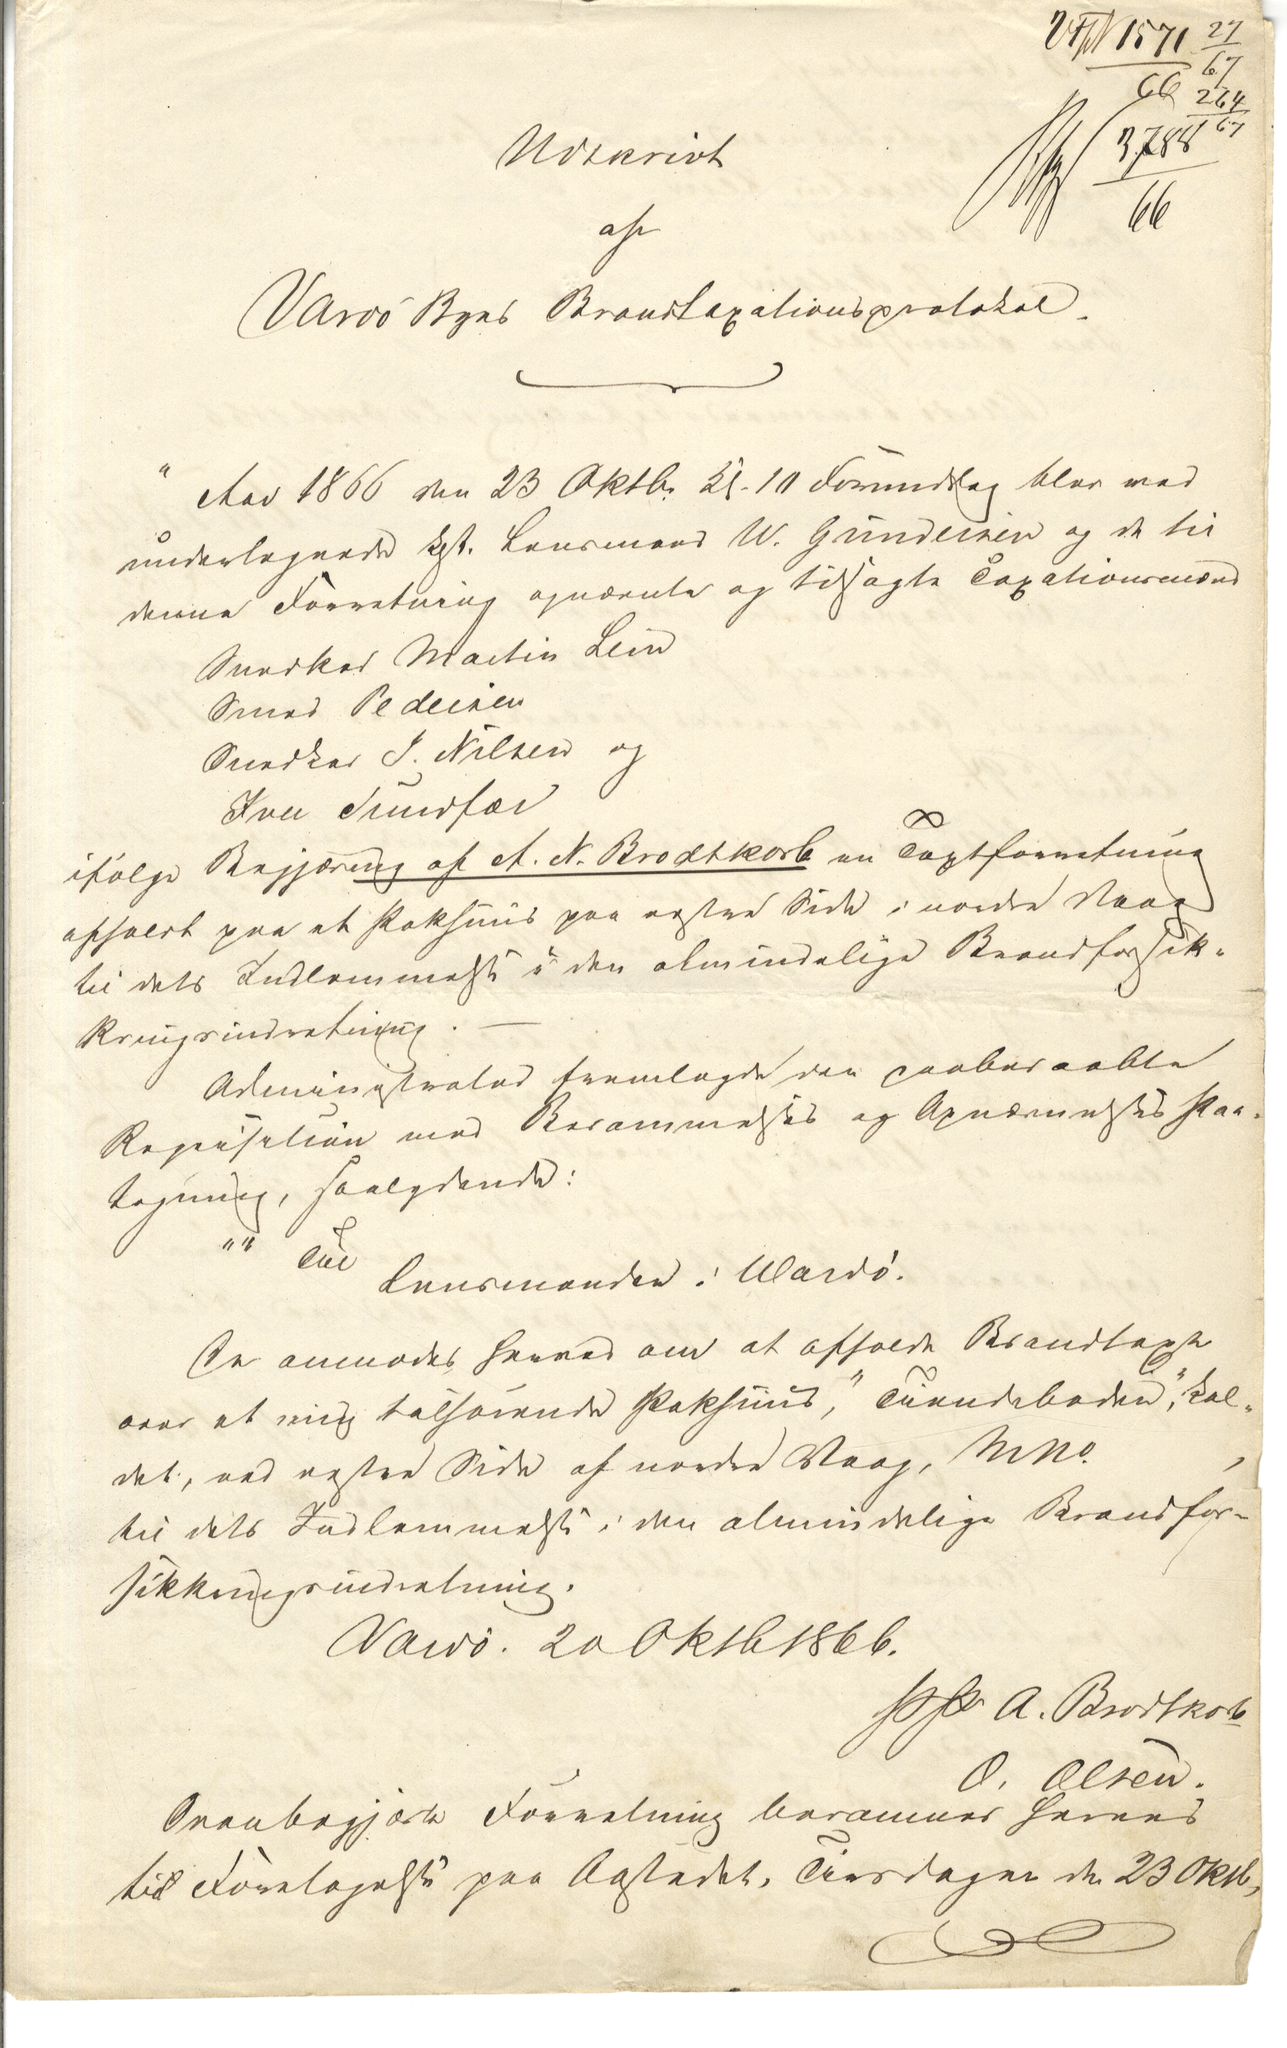 1571 27
66 67
264
67
3788
66
Udskrivt
af
Vardö Byes Brandtaxationsprotokol.
" Aar 1866 den 23 Oktb. Kl. 10 Formiddag blev ved
undertegnede kst. Lensmand W. Gundersen og de til
denne Forretning opnævnte og tilsagte Taxationsmænd
Snedker Martin Lein
Smed Pedersen
Snedker J. Nilsen og
Iver
ifølge Begjæring af A. N. Brodtkorb en Taxtforretning
afholdt paa et Pakhuus paa vestre Side i nordre Vaag
til dets Indlemmelse i den almindelige Brandforsik-
kringsindretning. —
Administrator fremlagde den paaberaabte
Reqvisition med Berammelses og Opnævnelses Paa-
tegning, saalydende:
"" Til
Lensmanden i Wardö.
De anmodes herved om at afholde Brandtaxt
over et mig tilhørende Pakhuus, "Tiendeboden", kal-
det, ved vestre Side af nordre Vaag, MNo. ,
til dets Indlemmelse i den almindelige Brandfor-
sikkringsindretning.
Vardö. 20 Oktb 1866.
A. Brodtkorb
O. Olsen.
Ovenbegjærte Forretning berammes herved
til Foretagelse paa Aastedet, Tirsdagen den 23 Oktb,